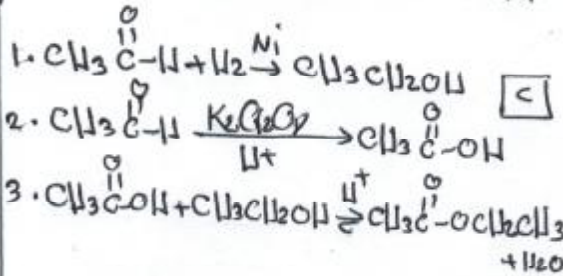 O
1. CH3 C-H + H2 Ni→ CH3CH2OH
C
O
2. CH3 C-H K2Cr2O7 → CH3 C-OH
H+
O
O
3. CH3 C-OH + CH3CH2OH H+ ⇌ CH3 C-OCH2CH3
O
O
+ H2O